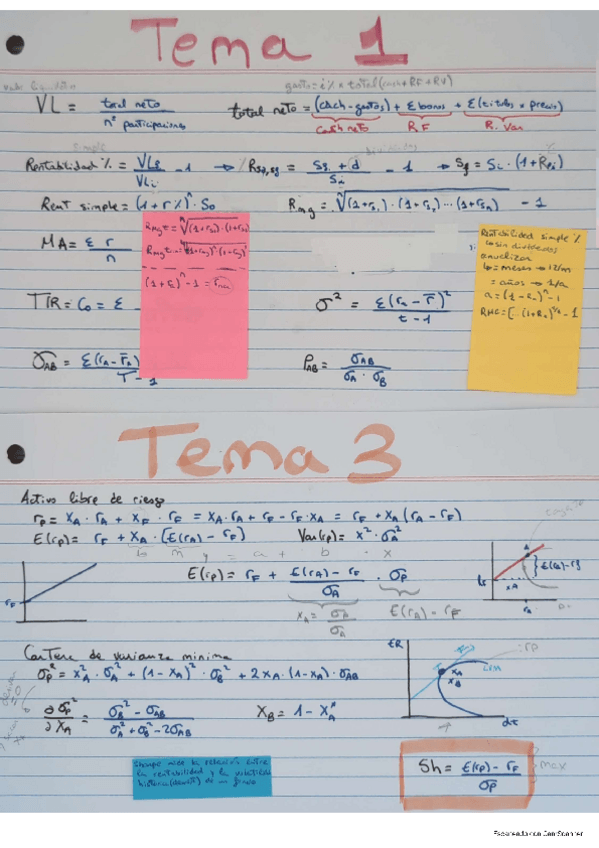 Tema 1
valor liquidativo
gasto = i% x total (cash + RF + RV)
VL = total neto / nº participaciones
total neto = (cash - gastos) + Σ bonos + Σ(titulos x precio)
cash neto R.F R. Var
simple
Rentabilidad % = VLf / VLi - 1 → % R = Sf + d / Si - 1 → Sf = Si · (1 + R)
Rent simple = (1 + r%)^n · S0
Rmg = ⁿ√(1+rs1) · (1+rs2) ... (1+rsn) - 1
MA = Σ r / n
(1 + r)^n - 1 =
TIR = C0 = Σ
σ² = Σ(rA - r̄)² / t - 1
σAB = Σ(rA - r̄A) / T - 1
ρAB = σAB / σA · σB
Rentabilidad simple %
con dividendos
anualizar
b = meses → 12/m
= años → 1/a
Tema 3
Activo libre de riesgo
rp = xA · rA + xF · rF = xA · rA + rF - rF · xA = rF + xA (rA - rF)
E(rp) = rF + xA · [E(rA) - rF] Var(rp) = x² · σA²
b m y = a + b - x
E(rp) = rF + E(rA) - rF / σA · σp
xA = σA / σA E(rA) - rF
rF
A } E(rA) - rF
xA
rA
Cartera de varianza minima
σp² = xA² · σA² + (1 - xA)² · σB² + 2xA · (1 - xA) · σAB
∂σp² / ∂xA = σB² - σAB / σA² + σB² - 2σAB XB = 1 - XA*
ER
rp
xA
xB
Sharpe mide la relación entre
la rentabilidad y la volatilidad
histórica (desvest) de un fondo
Sh = E(rp) - rF / σp
max
Escaneado con CamScanner